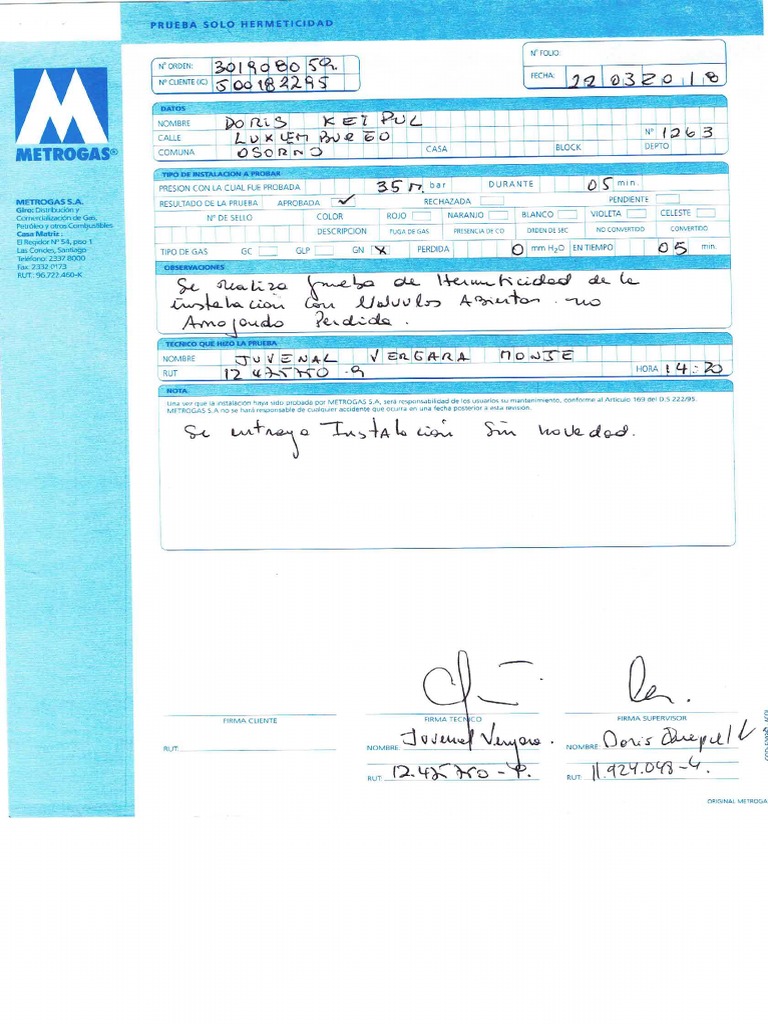 PRUEBA SOLO HERMETICIDAD
METROGAS®
METROGAS S.A.
Giro: Distribución y
Comercialización de Gas,
Petróleo y otros Combustibles
Casa Matriz:
El Regidor N° 54, piso 1
Las Condes, Santiago
Teléfono: 2337 8000
Fax: 2332 0173
RUT.: 96.722.460-K
N° ORDEN: 301908059.
N° CLIENTE (C) 500182295
N° FOLIO:
FECHA: 22 03 2018
DATOS
NOMBRE DORIS KEIPUL
CALLE LUXEMBURGO N° 1263
COMUNA OSORNO CASA BLOCK DEPTO
TIPO DE INSTALACION A PROBAR
PRESION CON LA CUAL FUE PROBADA 35 m. bar DURANTE 05 min.
RESULTADO DE LA PRUEBA APROBADA ✓ RECHAZADA PENDIENTE
N° DE SELLO COLOR ROJO NARANJO BLANCO VIOLETA CELESTE
DESCRIPCION FUGA DE GAS PRESENCIA DE CO ORDEN DE SEC NO CONVERTIDO CONVERTIDO
TIPO DE GAS GC GLP GN X PERDIDA 0 mm H2O EN TIEMPO 05 min.
OBSERVACIONES
Se realiza prueba de Hermeticidad de la
instalación con Valvulas Abiertas. no
Arrojando Perdida.
TECNICO QUE HIZO LA PRUEBA
NOMBRE JUVENAL VERGARA MONJE
RUT 12 475 750 - 9 HORA 14:20
NOTA
Una vez que la instalación haya sido probada por METROGAS S.A, será responsabilidad de los usuarios su mantenimiento, conforme al Artículo 169 del D.S 222/95.
METROGAS S.A no se hará responsable de cualquier accidente que ocurra en una fecha posterior a esta revisión.
Se entrega Instalación Sin novedad.
FIRMA CLIENTE FIRMA TECNICO FIRMA SUPERVISOR
NOMBRE: Juvenal Vergara. NOMBRE: Doris
RUT: RUT: 12.475 750 - 9. RUT: 11.924.048-4.
ORIGINAL METROGA